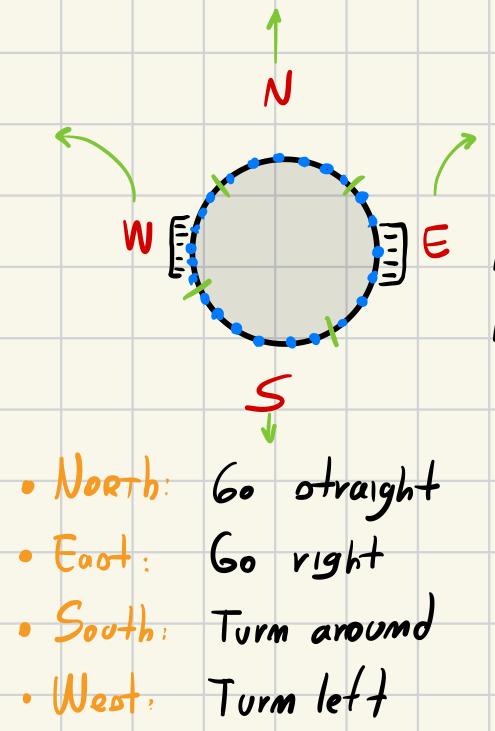 N
W
E
S
• North: Go straight
• East: Go right
• South: Turn around
• West: Turn left